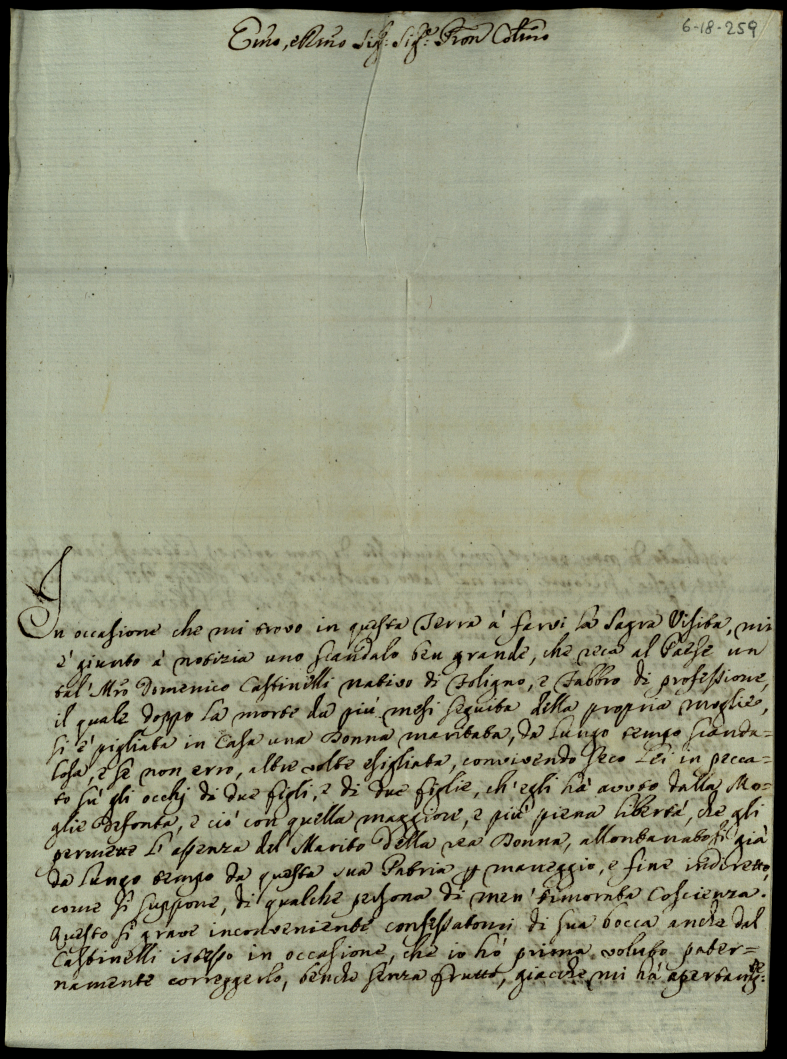 6-18-259
Emo, e Rmo Sig.r Sig.r Pron Colmo
In occasione che mi trovo in questa Terra à farvi la Sagra Visita, mi
è giunto à notizia uno scandalo ben grande, che reca al Paese un
tal' Mro Domenico Castinelli nativo di Foligno, e Fabbro di professione,
il quale doppo la morte da più mesi seguita della propria moglie,
si è pigliata in Casa una Donna maritata, da lungo tempo scanda=
losa, e se non erro, altre volte esigliata, convivendo seco lei in pecca=
to sù gli occhj di due figli, e di due figlie, ch'egli hà avuto dalla Mo=
glie defonta, e ciò con quella maggiore, e più piena libertà, che gli
permette l'assenza del Marito della rea Donna, allontanatosi già
da lungo tempo da questa sua Patria p maneggio, e fine indiretto,
come si suppone, di qualche persona di men' timorata Coscienza.
Questo sì grave inconveniente confessatomi di sua bocca anche dal
Castinelli istesso in occasione, che io hò prima voluto pater=
namente correggerlo, benche senza frutto, giacche mi hà apertam.te